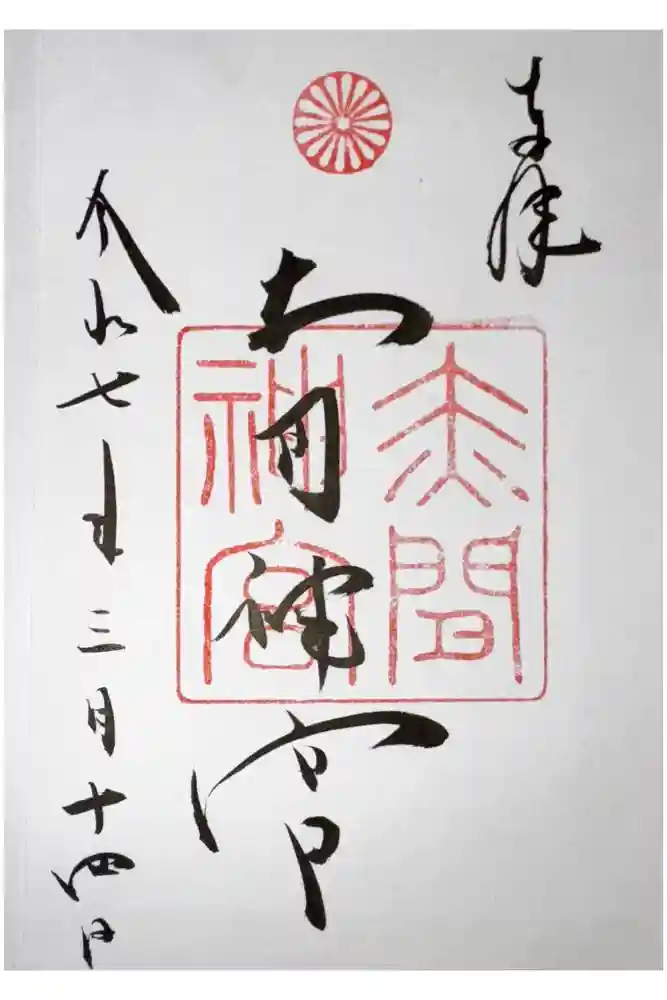 奉拝
赤間神宮
令和七年三月十四日
赤間
神宮